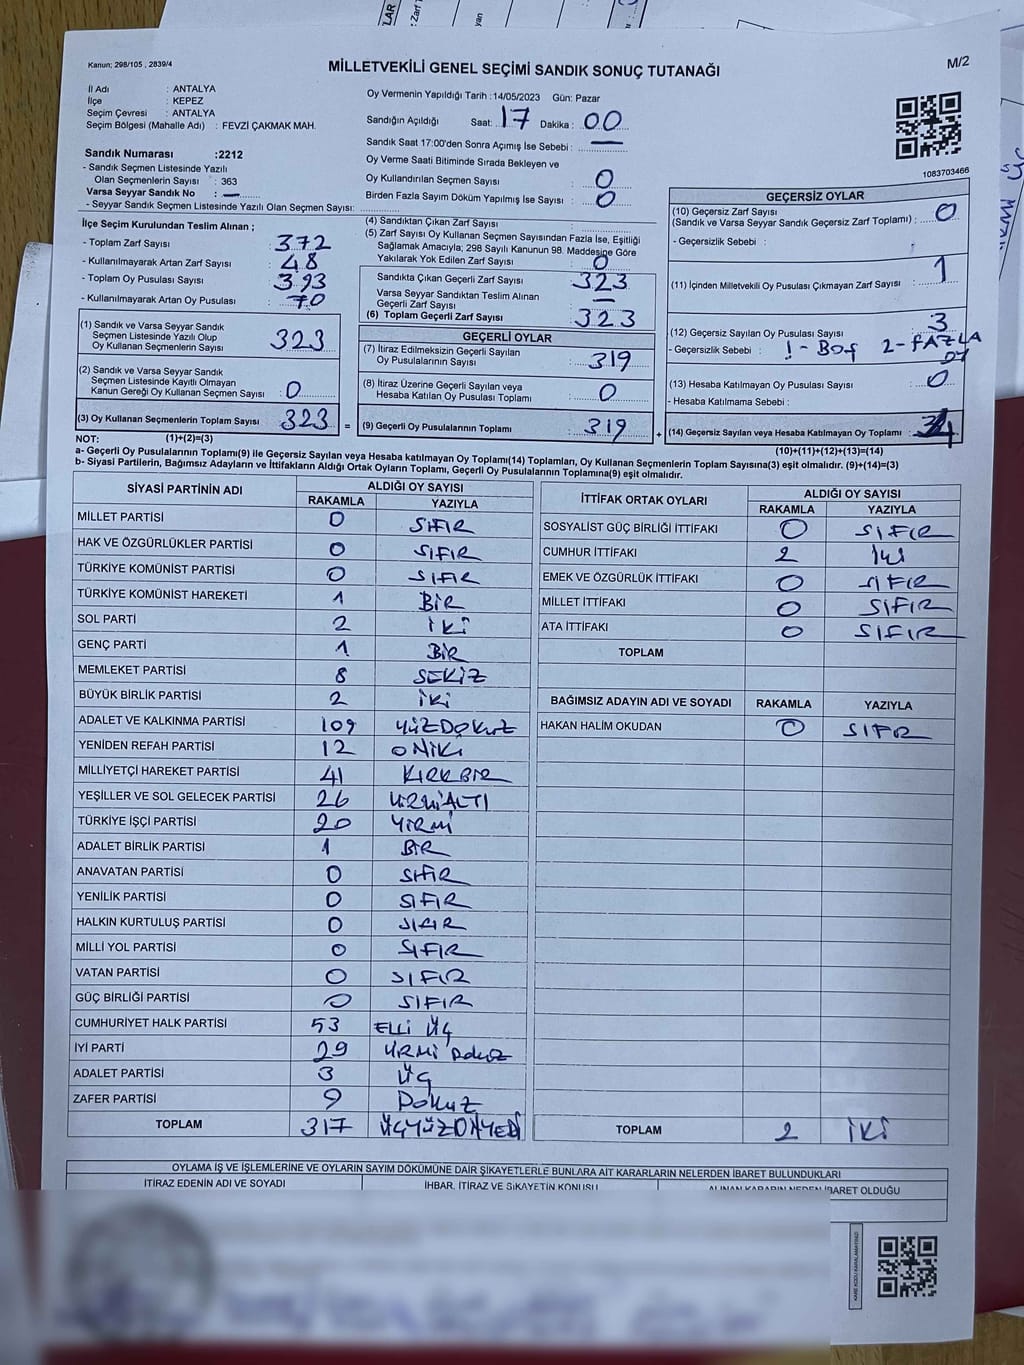 Kanun; 298/105 , 2839/4
MİLLETVEKİLİ GENEL SEÇİMİ SANDIK SONUÇ TUTANAĞI
M/2
İl Adı : ANTALYA
İlçe : KEPEZ
Seçim Çevresi : ANTALYA
Seçim Bölgesi (Mahalle Adı) : FEVZİ ÇAKMAK MAH.
Sandık Numarası :2212
- Sandık Seçmen Listesinde Yazılı
Olan Seçmenlerin Sayısı : 363
Varsa Seyyar Sandık No : —
- Seyyar Sandık Seçmen Listesinde Yazılı Olan Seçmen Sayısı:
Oy Vermenin Yapıldığı Tarih :14/05/2023 Gün: Pazar
Sandığın Açıldığı Saat: 17 Dakika : 00
Sandık Saat 17:00'den Sonra Açımış İse Sebebi : —
Oy Verme Saati Bitiminde Sırada Bekleyen ve
Oy Kullandırılan Seçmen Sayısı : 0
Birden Fazla Sayım Döküm Yapılmış İse Sayısı : 0
1083703466
İlçe Seçim Kurulundan Teslim Alınan ;
- Toplam Zarf Sayısı : 372
- Kullanılmayarak Artan Zarf Sayısı : 48
- Toplam Oy Pusulası Sayısı : 393
- Kullanılmayarak Artan Oy Pusulası : 70
(1) Sandık ve Varsa Seyyar Sandık
Seçmen Listesinde Yazılı Olup
Oy Kullanan Seçmenlerin Sayısı : 323
(2) Sandık ve Varsa Seyyar Sandık
Seçmen Listesinde Kayıtlı Olmayan
Kanun Gereği Oy Kullanan Seçmen Sayısı : 0
(3) Oy Kullanan Seçmenlerin Toplam Sayısı : 323 =
(4) Sandıktan Çıkan Zarf Sayısı :
(5) Zarf Sayısı Oy Kullanan Seçmen Sayısından Fazla İse, Eşitliği
Sağlamak Amacıyla; 298 Sayılı Kanunun 98. Maddesine Göre
Yakılarak Yok Edilen Zarf Sayısı : 0
Sandıkta Çıkan Geçerli Zarf Sayısı : 323
Varsa Seyyar Sandıktan Teslim Alınan
Geçerli Zarf Sayısı : —
(6) Toplam Geçerli Zarf Sayısı : 323
GEÇERLİ OYLAR
(7) İtiraz Edilmeksizin Geçerli Sayılan
Oy Pusulalarının Sayısı : 319
(8) İtiraz Üzerine Geçerli Sayılan veya
Hesaba Katılan Oy Pusulası Toplamı : 0
(9) Geçerli Oy Pusulalarının Toplamı : 319 +
GEÇERSİZ OYLAR
(10) Geçersiz Zarf Sayısı
(Sandık ve Varsa Seyyar Sandık Geçersiz Zarf Toplamı) : 0
- Geçersizlik Sebebi :
(11) İçinden Milletvekili Oy Pusulası Çıkmayan Zarf Sayısı : 1
(12) Geçersiz Sayılan Oy Pusulası Sayısı : 3
- Geçersizlik Sebebi : 1- Boş 2- FAZLA
OY
(13) Hesaba Katılmayan Oy Pusulası Sayısı : 0
- Hesaba Katılmama Sebebi :
(14) Geçersiz Sayılan veya Hesaba Katılmayan Oy Toplamı : 4
NOT: (1)+(2)=(3)
(10)+(11)+(12)+(13)=(14)
a- Geçerli Oy Pusulalarının Toplamı(9) ile Geçersiz Sayılan veya Hesaba katılmayan Oy Toplamı(14) Toplamları, Oy Kullanan Seçmenlerin Toplam Sayısına(3) eşit olmalıdır. (9)+(14)=(3)
b- Siyasi Partilerin, Bağımsız Adayların ve İttifakların Aldığı Ortak Oyların Toplamı, Geçerli Oy Pusulalarının Toplamına(9) eşit olmalıdır.
SİYASİ PARTİNİN ADI ALDIĞI OY SAYISI
RAKAMLA YAZIYLA
MİLLET PARTİSİ 0 SIFIR
HAK VE ÖZGÜRLÜKLER PARTİSİ 0 SIFIR
TÜRKİYE KOMÜNİST PARTİSİ 0 SIFIR
TÜRKİYE KOMÜNİST HAREKETİ 1 BİR
SOL PARTİ 2 İKİ
GENÇ PARTİ 1 BİR
MEMLEKET PARTİSİ 8 SEKİZ
BÜYÜK BİRLİK PARTİSİ 2 İKİ
ADALET VE KALKINMA PARTİSİ 109 YÜZDOKUZ
YENİDEN REFAH PARTİSİ 12 ONİKİ
MİLLİYETÇİ HAREKET PARTİSİ 41 KIRKBİR
YEŞİLLER VE SOL GELECEK PARTİSİ 26 YİRMİALTI
TÜRKİYE İŞÇİ PARTİSİ 20 YİRMİ
ADALET BİRLİK PARTİSİ 1 BİR
ANAVATAN PARTİSİ 0 SIFIR
YENİLİK PARTİSİ 0 SIFIR
HALKIN KURTULUŞ PARTİSİ 0 SIFIR
MİLLİ YOL PARTİSİ 0 SIFIR
VATAN PARTİSİ 0 SIFIR
GÜÇ BİRLİĞİ PARTİSİ 0 SIFIR
CUMHURİYET HALK PARTİSİ 53 ELLİ ÜÇ
İYİ PARTİ 29 YİRMİ DOKUZ
ADALET PARTİSİ 3 ÜÇ
ZAFER PARTİSİ 9 DOKUZ
TOPLAM 317 ÜÇYÜZONYEDİ
İTTİFAK ORTAK OYLARI ALDIĞI OY SAYISI
RAKAMLA YAZIYLA
SOSYALİST GÜÇ BİRLİĞİ İTTİFAKI 0 SIFIR
CUMHUR İTTİFAKI 2 İKİ
EMEK VE ÖZGÜRLÜK İTTİFAKI 0 SIFIR
MİLLET İTTİFAKI 0 SIFIR
ATA İTTİFAKI 0 SIFIR
TOPLAM
BAĞIMSIZ ADAYIN ADI VE SOYADI RAKAMLA YAZIYLA
HAKAN HALİM OKUDAN 0 SIFIR
TOPLAM 2 İKİ
OYLAMA İŞ VE İŞLEMLERİNE VE OYLARIN SAYIM DÖKÜMÜNE DAİR ŞİKAYETLERLE BUNLARA AİT KARARLARIN NELERDEN İBARET BULUNDUKLARI
İTİRAZ EDENİN ADI VE SOYADI İHBAR, İTİRAZ VE ŞİKAYETİN KONUSU ALINAN KARARIN NEDEN İBARET OLDUĞU